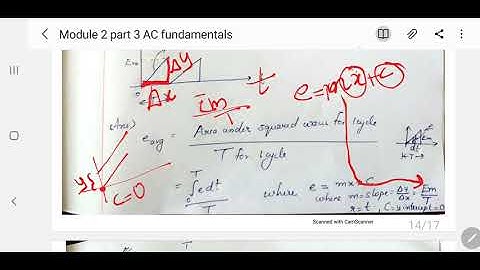 Module 2 part 3 AC fundamentals
Em
Δy
t
0
Δx
e=mx+c
Em
T
(Ans)
e avg = Area under squared wave for 1 cycle
T for 1 cycle
y
C=0
= ∫ e dt
T
0
T
where e = mx+C
where m=slope=Δy/Δx=Em/T
x=t, C=y intercept=0
dt
Scanned with CamScanner
14/17
T